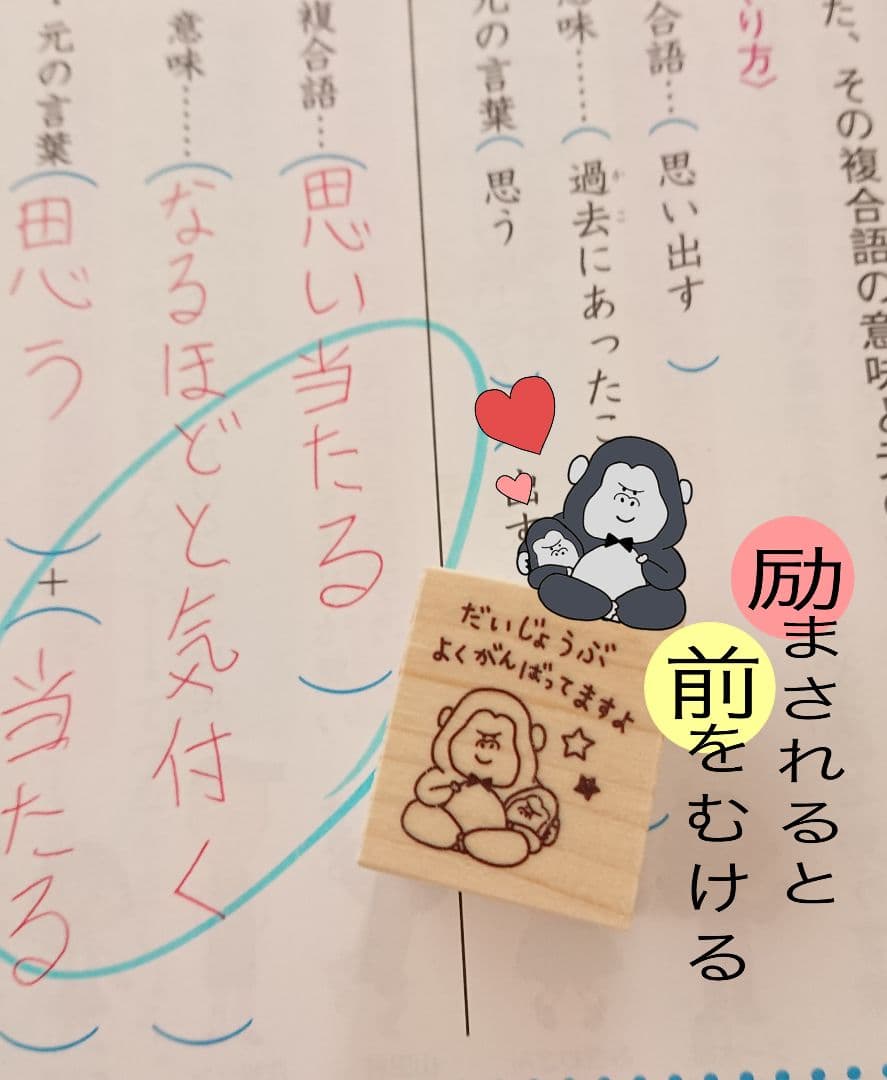 た、その複合語の意味と
り方》
合語…（思い出す　）
意味……（過去にあったこ
元の言葉（思う
出す
複合語…（思い当たる　）
意味……（なるほどと気付く　）
・元の言葉（思う　）＋（当たる　）
だいじょうぶ
よくがんばってますよ
励まされると
前をむける